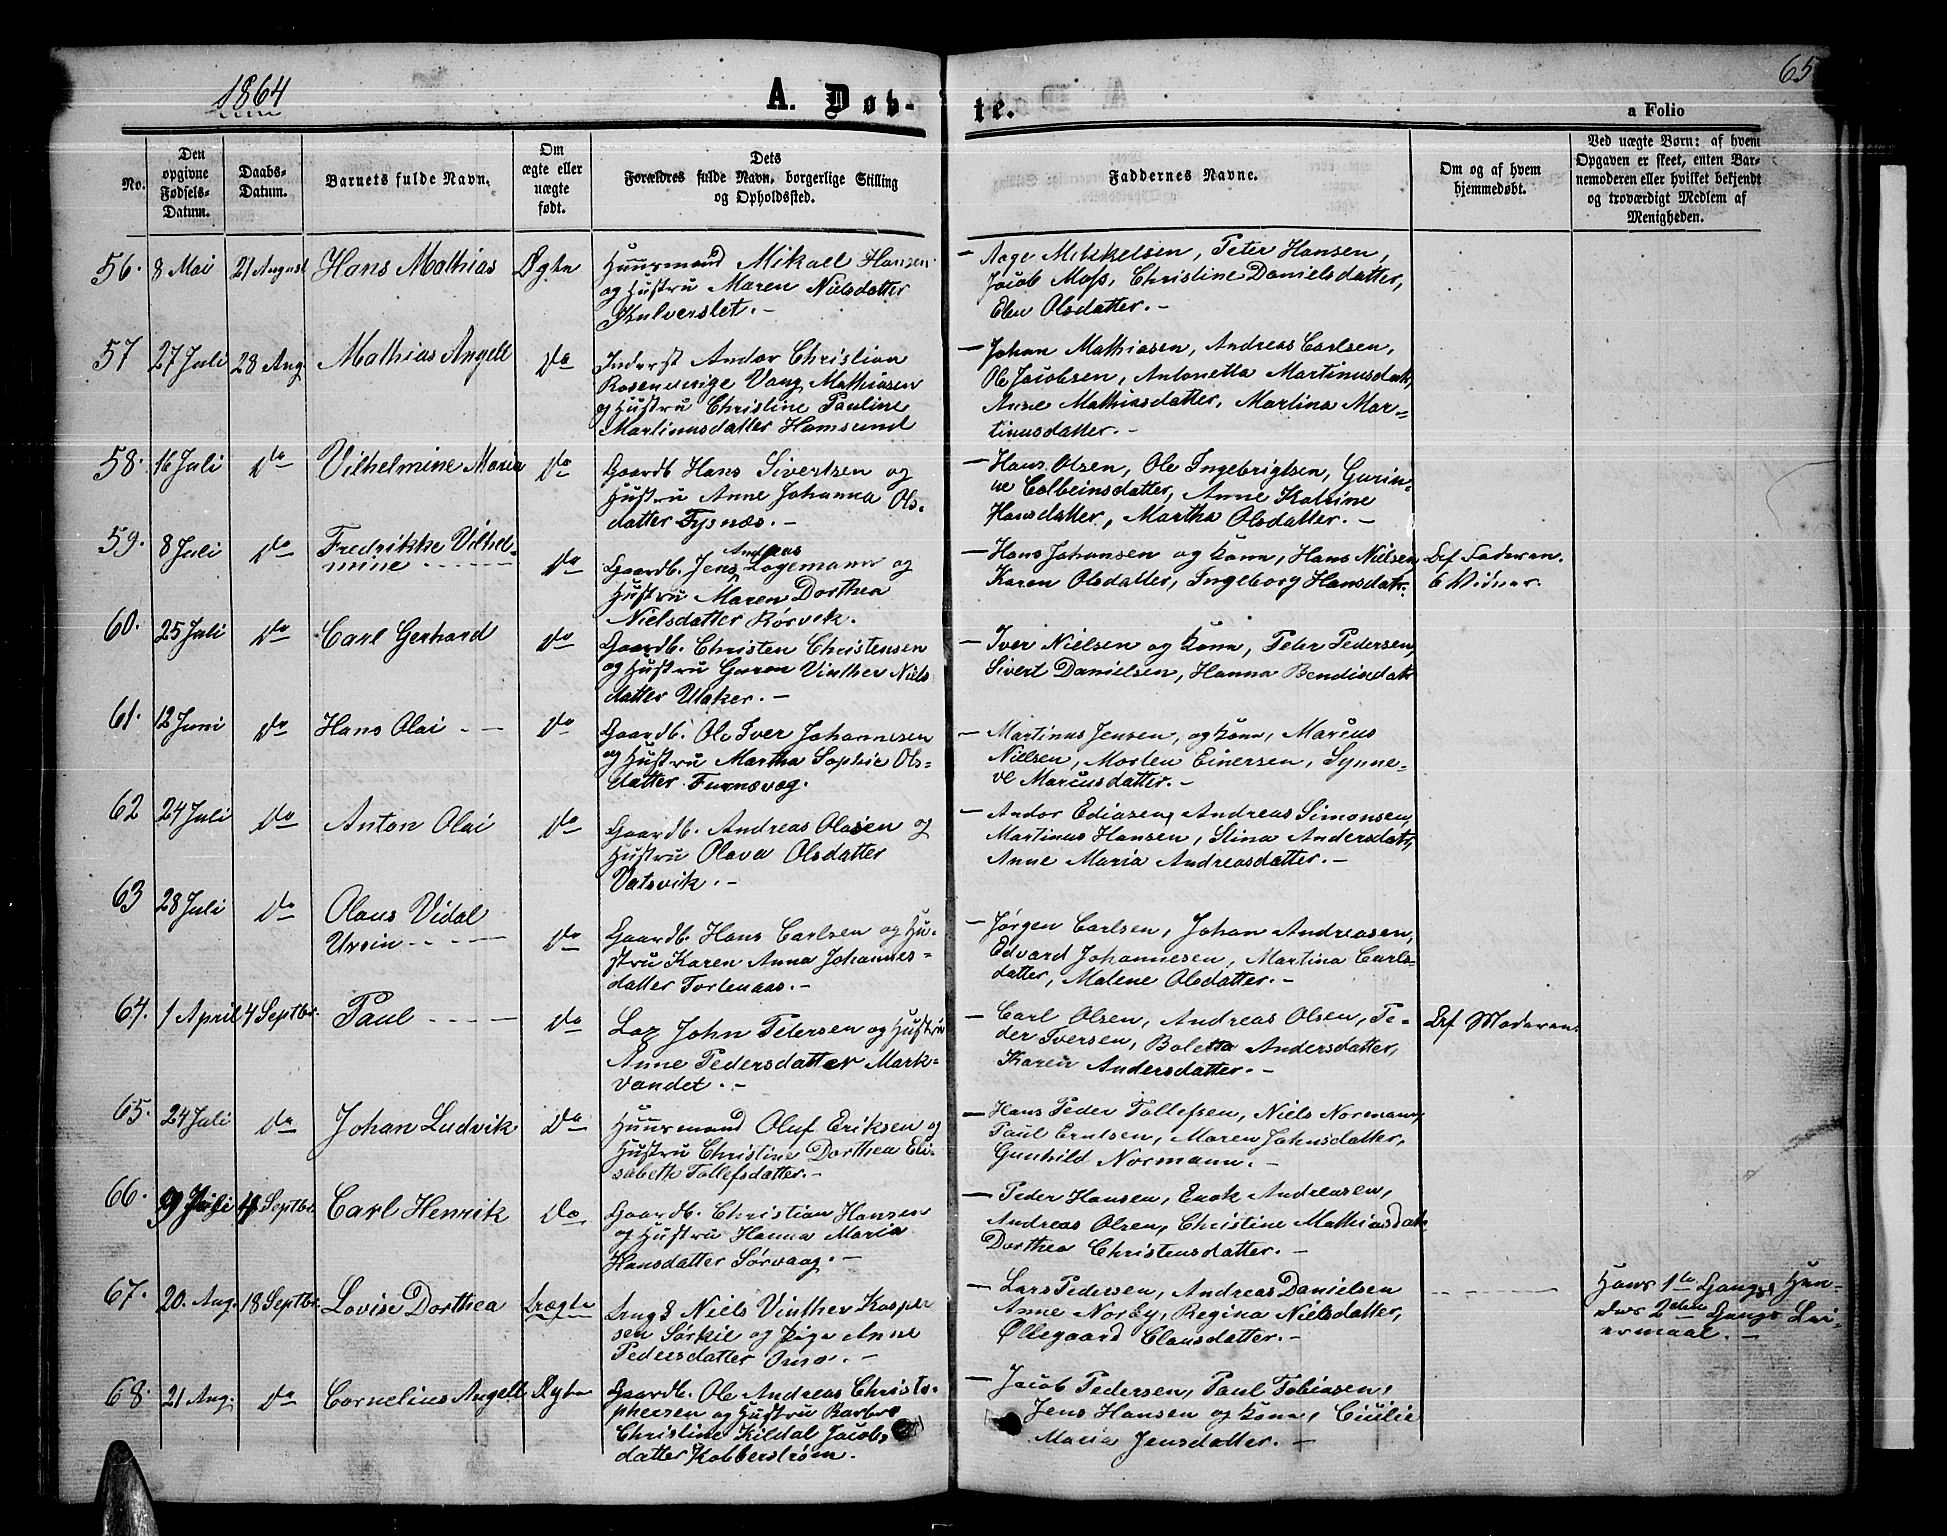 1864
A. Døb-
te.
65
a Folio
No.
Den
opgivne
Fødsels-
Datum.
Daabs-
Datum.
Barnets fulde Navn.
Om
ægte eller
uægte
født.
Dets
Forældres fulde Navn, borgerlige Stilling
og Opholdssted.
Faddernes Navne.
Om og af hvem
hjemmedøbt.
Ved uægte Børn: af hvem
Opgaven er skeet, enten Bar-
nemoderen eller hvilket bekjendt
og troværdigt Medlem af
Menigheden.
56. 8 Mai 21 August Hans Mathias Ægte
Huusmand Mikael Hansen
og Hustru Maren Nielsdatter
Kulverslet. -
- Aage Mikkelsen, Peter Hansen,
Jacob Moss, Christine Danielsdatter,
Elen Olsdatter. -
57 27 Juli 28 Aug. Mathias Angell Do
Inderst Andor Christian
Rosenvinge Vang Mathiasen
og Hustru Christine Pauline
Martinusdatter Hamsund
- Johan Mathiasen, Andreas Carlsen,
Ole Jacobsen, Antonetta Martinusdatr,
Anne Mathiasdatter, Martina Mar-
tinusdatter. -
58. 16 Juli Do Vilhelmine Maria Do
Gaardb. Hans Sivertsen og
Hustru Anne Johanna Ols-
datter Fysnæs. -
- Hans Olsen, Ole Ingebrigtsen, Gurin-
ne Colbeinsdatter, Anne Katrine
Hansdatter, Martha Olsdatter. -
59. 8 Juli Do Fredrikke Vilhel-
mine Do
Gaardb. Jens Andreas Lagemann og
Hustru Maren Dorthea
Nielsdatter Rørvik.
- Hans Johansen og Kone, Hans Nielsen
Karen Olsdatter, Ingeborg Hansdatr.
Af Faderen.
6 Vidner.
60. 25 Juli Do Carl Gerhard Do
Gaardb. Christen Christensen
og Hustru Garen Vinther Niels
datter Ulsker. -
- Iver Nielsen og Kone, Peter Pedersen,
Sivert Danielsen, Hanna Bendixdatr
61. 12 Juni Do Hans Olai Do
Gaardb. Ole Iver Johannesen
og Hustru Martha Sophie Ols-
datter Furnævag.
- Martinus Jensen, og Kone, Marcus
Nielsen, Morten Einersen, Synne-
ve Marcusdatter. -
62 24 Juli Do Anton Olai Do
Gaardb. Andreas Olasen og
Hustru Olava Olsdatter
Vatsvik. -
- Andor Ediasen, Andreas Simonsen,
Martinus Hansen, Stina Andersdatr,
Anne Maria Andreasdatter. -
63 28 Juli Do Olaus Vidal
Ursin Do
Gaardb. Hans Carlsen og Hu-
stru Karen Anna Johannes-
datter Torlenaas. -
- Jørgen Carlsen, Johan Andreasen,
Edvard Johannesen, Martina Carls-
datter, Malene Olsdatter. -
64. 1 April 4 Septbr. Paul Do
Lap John Petersen og Hustru
Anne Pedersdatter Mark-
vandet. -
- Carl Olsen, Andreas Olsen, Pe-
der Iversen, Boletta Andersdatter,
Karen Andersdatter. -
Af Moderen.
65. 24 Juli Do Johan Ludvik Do
Huusmand Oluf Eriksen og
Hustru Christine Dorthea Eli-
sabeth Tollefsdatter. -
- Hans Peder Tollefsen, Niels Normann,
Paul Erntsen, Maren Johnsdatter,
Gunhild Normann. -
66. 9 Juli 4 Septbr. Carl Henrik Do
Gaardb. Christian Hansen
og Hustru Hanna Maria
Hansdatter Sørvaag. -
- Peder Hansen, Enok Andreasen,
Andreas Olsen, Christine Mathiasdatr
Dorthea Christensdatter. -
67. 20. Aug. 18 Septbr. Lovise Dorthea Uægte
Ungk Niels Vinther Kasper
sen Sørkil og Pige Anne
Pedersdatter Omo. -
- Lars Pedersen, Andreas Danielsen
Anne Norby, Regina Nielsdatter,
Ollegaard Clausdatter. -
Hans 1ste Gangs Hen-
des 2den Gangs Lei-
ermaal. -
68. 21 Aug. Do Cornelius Angell Ægte
Gaardb. Ole Andreas Christo-
phersen og Hustru Barbro
Christine Kildal Jacobs
datter Kobberstrøm.
- Jacob Pedersen, Paul Tobiasen,
Jens Hansen og Kone, Cicilie
Maria Jensdatter. -